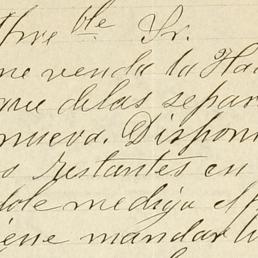 ble Sr.
me venda la Hac
que de las separ
nueva. Dispon
s restantes en
dole me diga el
iene mandar